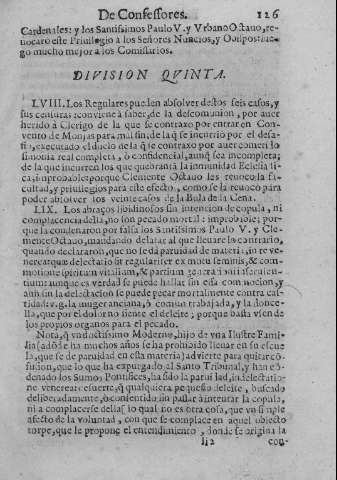 De Confessores. 126
Cardenales: y los Santissimos Paulo V. y Vrbano Octauo, re-
uocaro este Priuilegio à los Señores Nuncios, y
go mucho mejor à los Comissarios.
DIVISION QVINTA.
LVIII. Los Regulares pueden absolver destos seis casos, y
sus censuras conviene à saber, de la descomunion, por auer
herido à Clerigo de la que se contraxo por entrar en Con-
vento de Monjas para mal fin, de la q̃ se incurrio por el desa-
fio, executado el duelo de la q̃ se contraxo por auer comerido
simonia real completa, ò confidencial, aunq̃ sea incompleta;
de la que incurren los que quebrantā la inmunidad Eclesiasti
ca; improbable; porque Clemente Octauo les reuoco la fa
cultad, y priuilegios para este efecto, como se la reuoco para
poder absolver los veinte casos de la Bula de la Cena.
LIX. Los abraços libidinosos sin intencion de copula, ni
complacencia della, no son pecado mortal: improbable; por-
que la condenaron por falsa los Santissimos Paulo V. y Cle-
mente Octauo, mandando delatar al que lleuare lo contrario,
quando declararon, que no se dà paruidad de materia, in re ve-
nerea: quæ delectatio sit regulariter ex motu seminis, & com-
motione spirituum vitalium, & partium
tium: aunque es verdad se puede hallar sin esta con nocion, y
aun sin la delectacion se puede pecar mortalmente contra cas-
tidad: v.g. la muger anciana, ò comun trabajada, y la donce-
lla, que por el dolor no siente el deleite; porque basta vsen de
los propios organos para el pecado.
Nota, q̃ vn doctissimo Moderno, hijo de vna Ilustre Fami-
lia (adōde ha muchos años se ha prohibido lleuar en su escue
la, que se dè paruidad en esta materia) advierte para quitar cō-
fusion, que lo que ha expurgado al Santo Tribunal, y han cō-
denado los Sumos Pontifices, ha sido la paruidad, in delectatio-
ne venerea: esto es, q̃ qualquiera pequeño deleite, buscado
deliberadamente, ò consentido sin passar à intentar la copula,
ni à complacerse della; lo qual no es otra cosa, que vn simple
afecto de la voluntad, con que se complace en aquel objecto
torpe, que le propone el entendimiento, donde se origina la
Ii2 con-